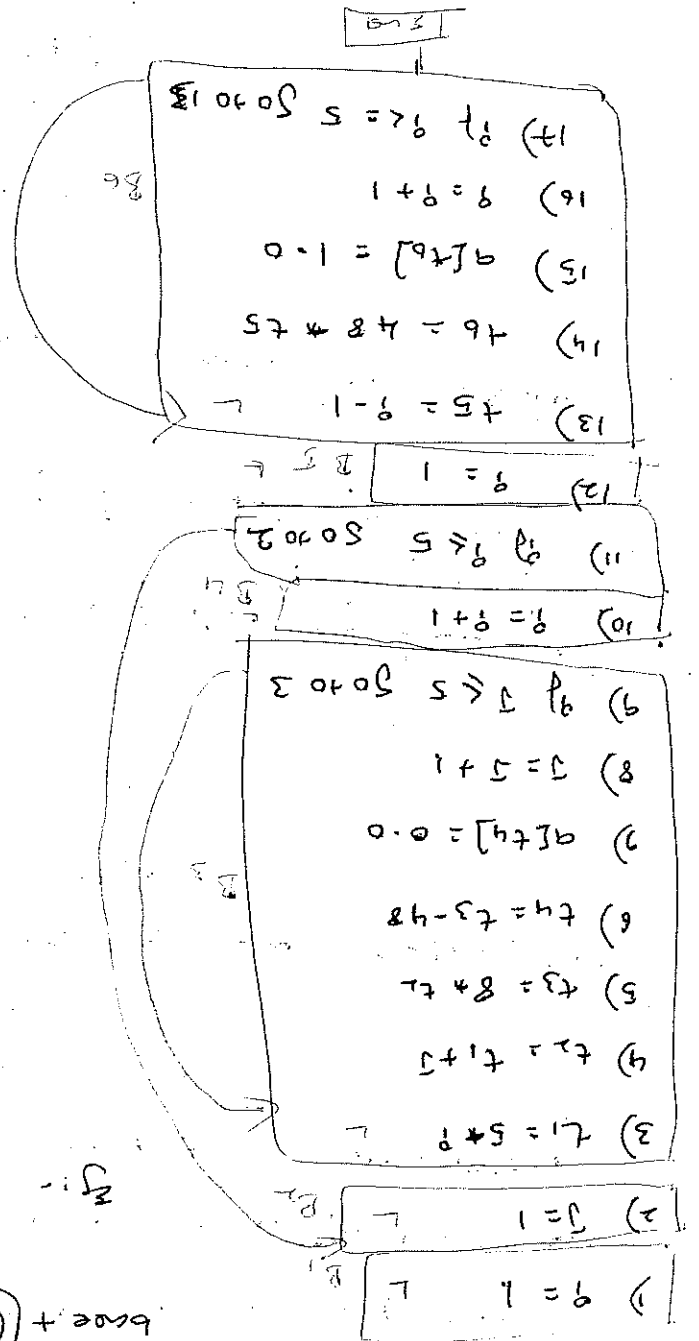 base + (
Eg:-
1) i = 1 L B1
2) J = 1 L B2
3) t1 = 5 * i L
4) t2 = t1 + J
5) t3 = 8 * t2
6) t4 = t3 - 48
7) a[t4] = 0.0
8) J = J + 1
9) if J ≤ 5 goto 3
B3
10) i = i + 1 L B4
11) if i ≤ 5 goto 2
12) i = 1 B5 L
13) t5 = i - 1 L
14) t6 = 48 * t5
15) a[t6] = 1.0
16) i = i + 1
17) if i <= 5 goto 13
B6
End